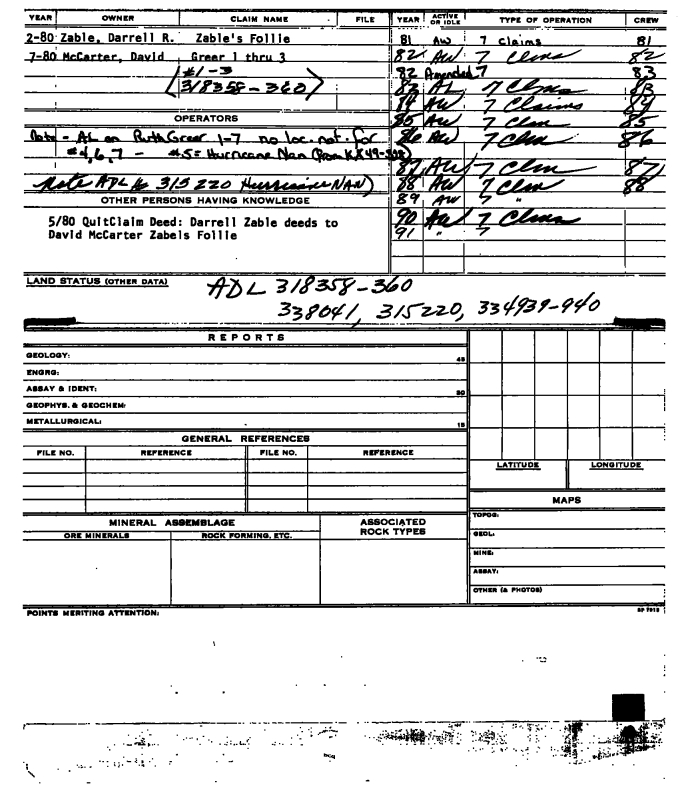 YEAR OWNER CLAIM NAME FILE YEAR ACTIVE OR IDLE TYPE OF OPERATION CREW
2-80 Zable, Darrell R. Zable's Follie 81 AW 7 claims 81
7-80 McCarter, David Greer 1 thru 3 82 AW 7 Clms 82
#1-3 82 Amended 7 83
318358-360 83 AL 7 Clms 83
84 AW 7 Claims 84
OPERATORS 85 AW 7 Clm 85
Note - AL on Ruth Greer 1-7 no loc. not. for 86 AW 7 Clm 86
#4,6,7 - #5= Hurricane Nan (from KX49-328)
87 AW 7 Clm 87
Note ADL # 315220 Hurricane NAN) 88 AW 7 Clm 88
OTHER PERSONS HAVING KNOWLEDGE 89 AW 7 "
5/80 QuitClaim Deed: Darrell Zable deeds to 90 AW 7 Clms
David McCarter Zabels Follie 91 " 7
LAND STATUS (OTHER DATA) ADL 318358-360
338041, 315220, 334939-940
REPORTS
GEOLOGY: 45
ENGRG:
ASSAY & IDENT: 30
GEOPHYS. & GEOCHEM:
METALLURGICAL: 15
GENERAL REFERENCES
FILE NO. REFERENCE FILE NO. REFERENCE
LATITUDE LONGITUDE
MAPS
MINERAL ASSEMBLAGE ASSOCIATED ROCK TYPES TOPOG:
ORE MINERALS ROCK FORMING, ETC. GEOL:
MINE:
ASSAY:
OTHER (& PHOTOS)
POINTS MERITING ATTENTION: